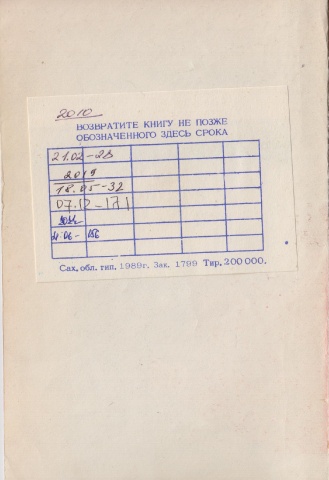 2010
ВОЗВРАТИТЕ КНИГУ НЕ ПОЗЖЕ
ОБОЗНАЧЕННОГО ЗДЕСЬ СРОКА
21.02 - 28
2019
18.05 - 32
07.12 - 171
21.06 - 156
Сах. обл. тип. 1989г. Зак. 1799 Тир. 200 000.